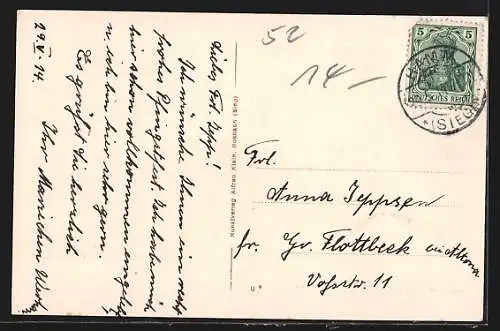 Liebes Frl. Jepp!
Ich wünsche Ihnen ein recht
frohes Pfingstfest. Ich habe mich
hier schon vollkommen eingelebt
u. ich bin hier sehr gern.
Es grüßt Sie herzlich
Ihr Mariechen
29.V.14.
Kunstverlag Alfred Klein, Rosbach (Sieg)
52
14 –
5 5
DEUTSCHES REICH
* (SIEG)
Frl.
Anna Jeppsen
fr. Gr. Flottbeck bei Altona
Voßstr. 11